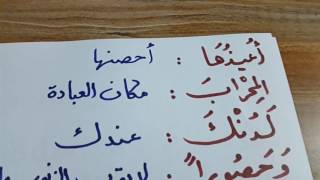 أُعِيذُهَا : أحصنها
المِحْرَابَ : مكان العبادة
لَدُنْكَ : عندك
وَحَصُوراً :